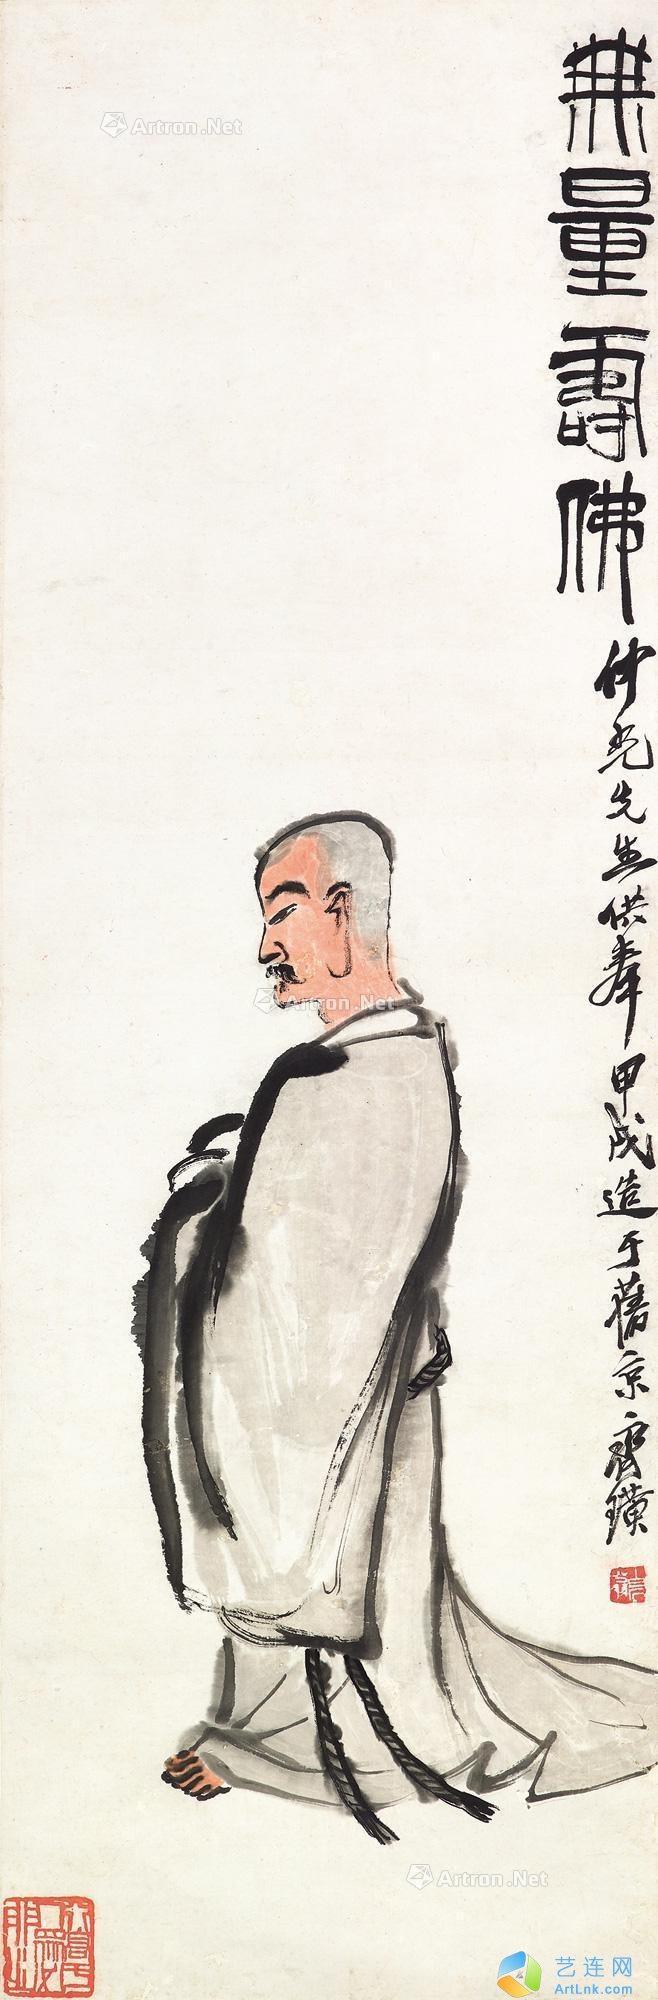 無量壽佛
仲光先生供奉甲戌造于舊京齊璜
Artron.Net
Artron.Net
Artron.Net
艺连网
ArtLnk.com